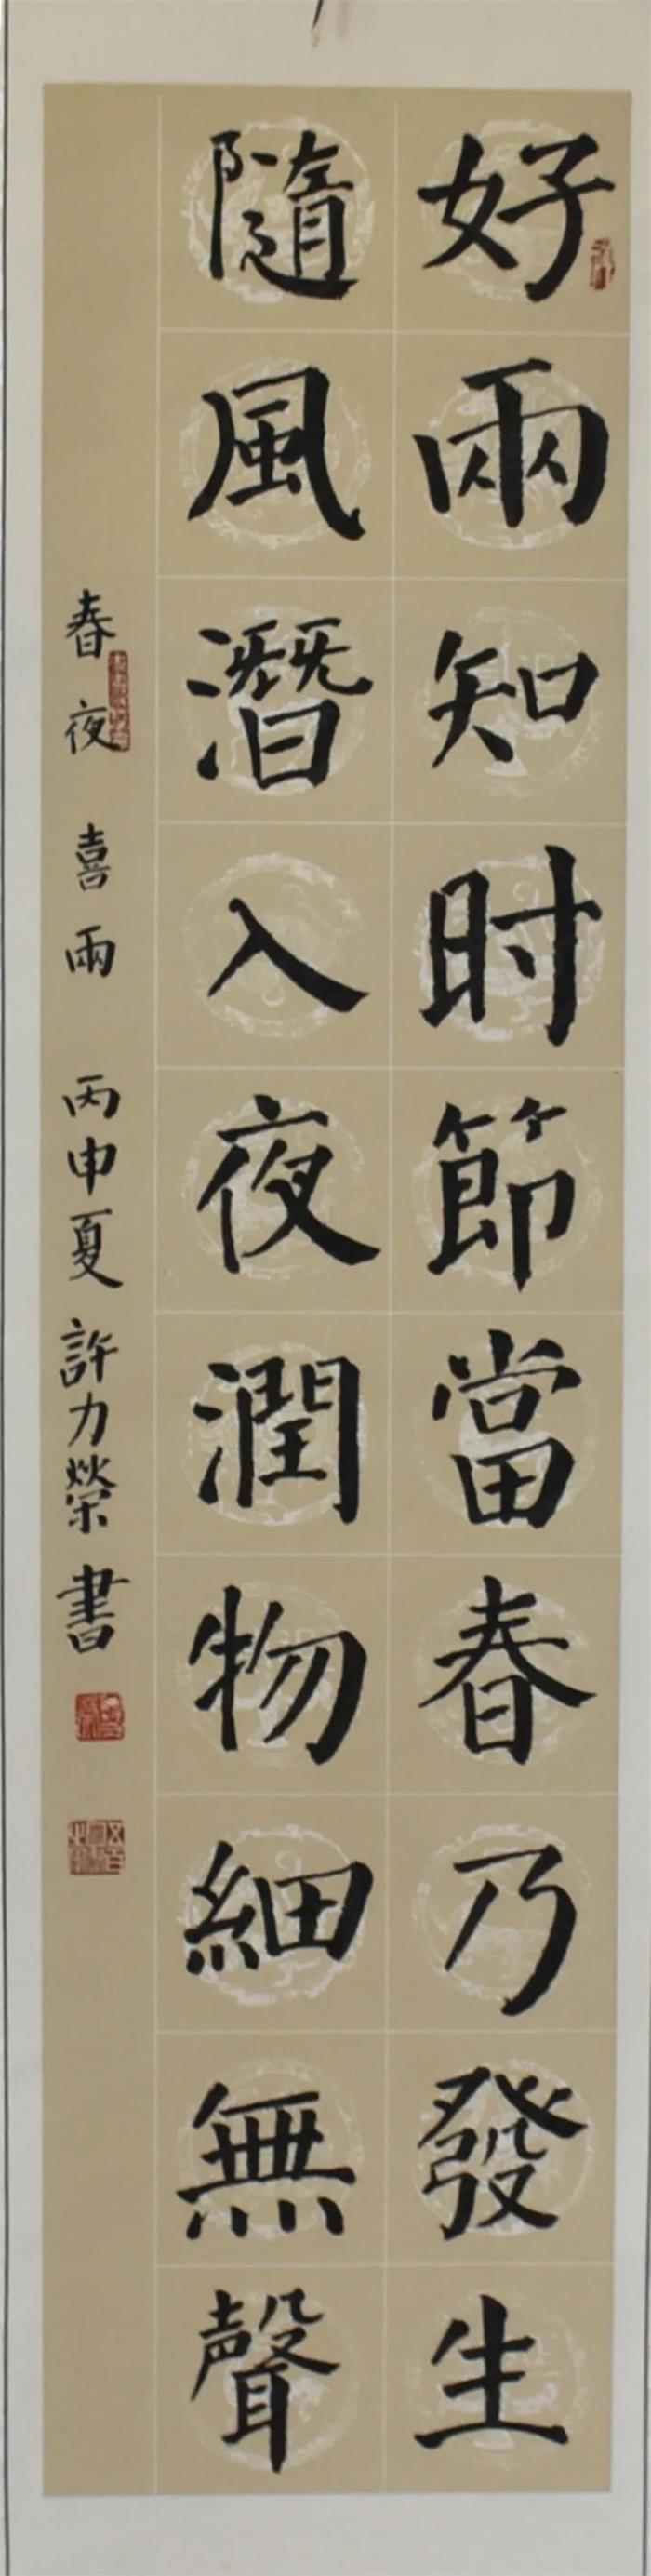 好雨知时節當春乃發生
隨風潛入夜潤物細無聲
春夜喜雨 丙申夏 許力榮書